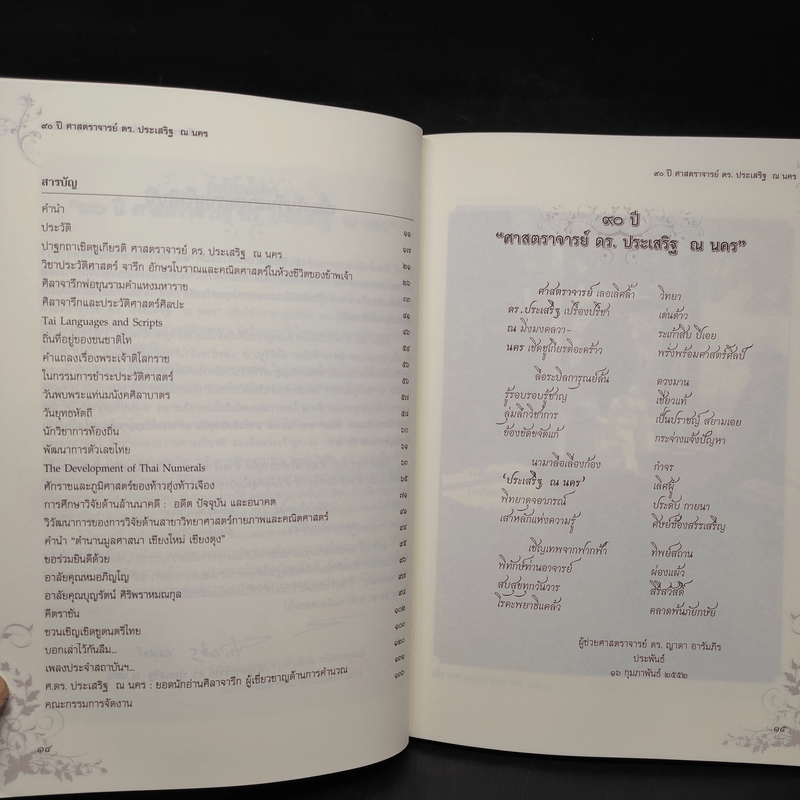 ๙๐ ปี ศาสตราจารย์ ดร. ประเสริฐ ณ นคร
สารบัญ
คำนำ
ประวัติ ๑๑
ปาฐกถาเชิดชูเกียรติ ศาสตราจารย์ ดร. ประเสริฐ ณ นคร ๑๗
วิชาประวัติศาสตร์ จารึก อักษรโบราณและคณิตศาสตร์ในห้วงชีวิตของข้าพเจ้า ๒๑
ศิลาจารึกพ่อขุนรามคำแหงมหาราช
ศิลาจารึกและประวัติศาสตร์ศิลปะ
Tai Languages and Scripts
ถิ่นที่อยู่ของชนชาติไท
คำแถลงเรื่องพระเจ้าติโลกราช
ในกรรมการชำระประวัติศาสตร์
วันพบพระแท่นมนังคศิลาบาตร
วันยุทธหัตถี
นักวิชาการท้องถิ่น
พัฒนาการตัวเลขไทย
The Development of Thai Numerals
ศักราชและภูมิศาสตร์ของท้าวฮุ่งท้าวเจือง
การศึกษาวิจัยด้านล้านนาคดี : อดีต ปัจจุบัน และอนาคต
วิวัฒนาการของการวิจัยด้านสาขาวิทยาศาสตร์กายภาพและคณิตศาสตร์
คำนำ "ตำนานมูลศาสนา เชียงใหม่ เชียงตุง"
ขอร่วมยินดีด้วย
อาลัยคุณหมอภิญโญ
อาลัยคุณบุญรัตน์ ศิริพราหมณกุล
คีตราชัน
ชวนเชิญเชิดชูดนตรีไทย
บอกเล่าไว้กันลืม...
เพลงประจำสถาบันฯ...
ศ.ดร. ประเสริฐ ณ นคร : ยอดนักอ่านศิลาจารึก ผู้เชี่ยวชาญด้านการคำนวณ
คณะกรรมการจัดงาน
๑๔
๙๐ ปี ศาสตราจารย์ ดร. ประเสริฐ ณ นคร
๙๐ ปี
"ศาสตราจารย์ ดร. ประเสริฐ ณ นคร"
ศาสตราจารย์ เลอเลิศล้ำ วิทยา
ดร.ประเสริฐ เปรื่องปรีชา เด่นด้าว
ณ มิ่งมงคลวา- ระเก้าสิบ ปีเอย
นคร เชิดชูเกียรติอะคร้าว พรั่งพร้อมศาสตร์ศิลป์
ลือระบิลการุณย์ล้น ดวงมาน
รู้รอบรอบรู้ชาญ เชี่ยวแท้
ลุ่มลึกวิชาการ เป็นปราชญ์ สยามเอย
ข้องขัดขจัดแก้ กระจ่างแจ้งปัญหา
นามาลือเลื่องก้อง กำจร
'ประเสริฐ ณ นคร' เลิศผู้
พิทยาดุจอาภรณ์ ประดับ กายนา
เสาหลักแห่งความรู้ ศิษย์ซ้องสรรเสริญ
เชิญเทพจากฟากฟ้า ทิพย์สถาน
พิทักษ์ท่านอาจารย์ ผ่องแผ้ว
สบสุขทุกวันวาร สิริสวัสดิ์
โรคะพยาธิแคล้ว คลาดพ้นภัยกษัย
ผู้ช่วยศาสตราจารย์ ดร. ญาดา อารัมภีร
ประพันธ์
๑๖ กุมภาพันธ์ ๒๕๕๒
๑๕